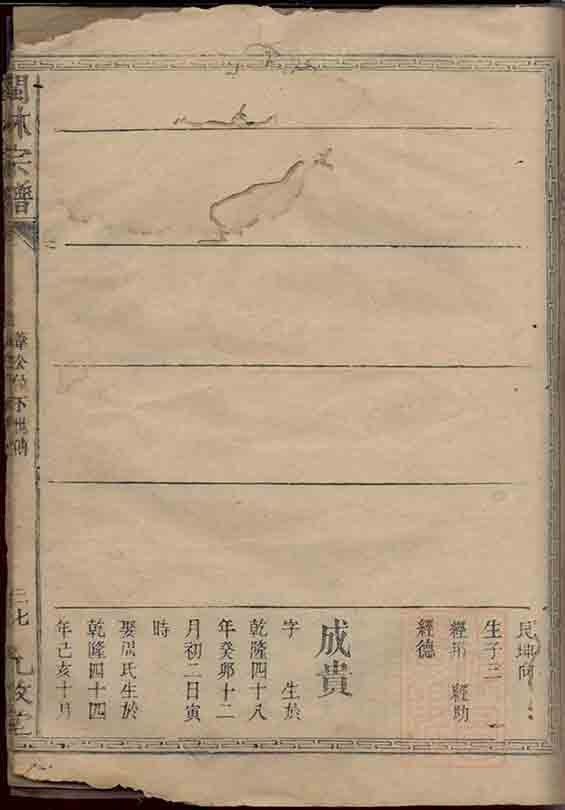 艮坤向
生子三
經邦 經助
經德
成貴
字 生於
乾隆四十八
年癸卯十二
月初二日寅
時
娶周氏生於
乾隆四十四
年己亥十月
閩林宗譜
公位下世傳